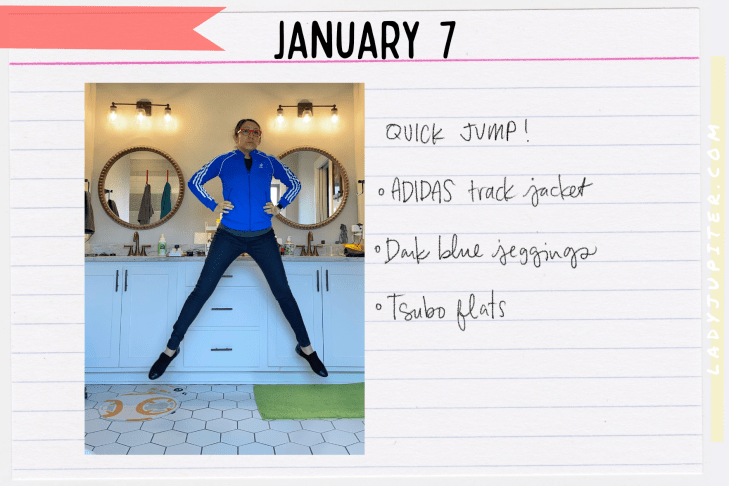 JANUARY 7
QUICK JUMP!
• ADIDAS track jacket
• Dark blue jeggings
• Tsubo flats
LADYJUPITER.COM